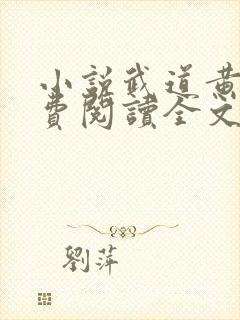 小說武道黃
費閱讀全文
劉萍